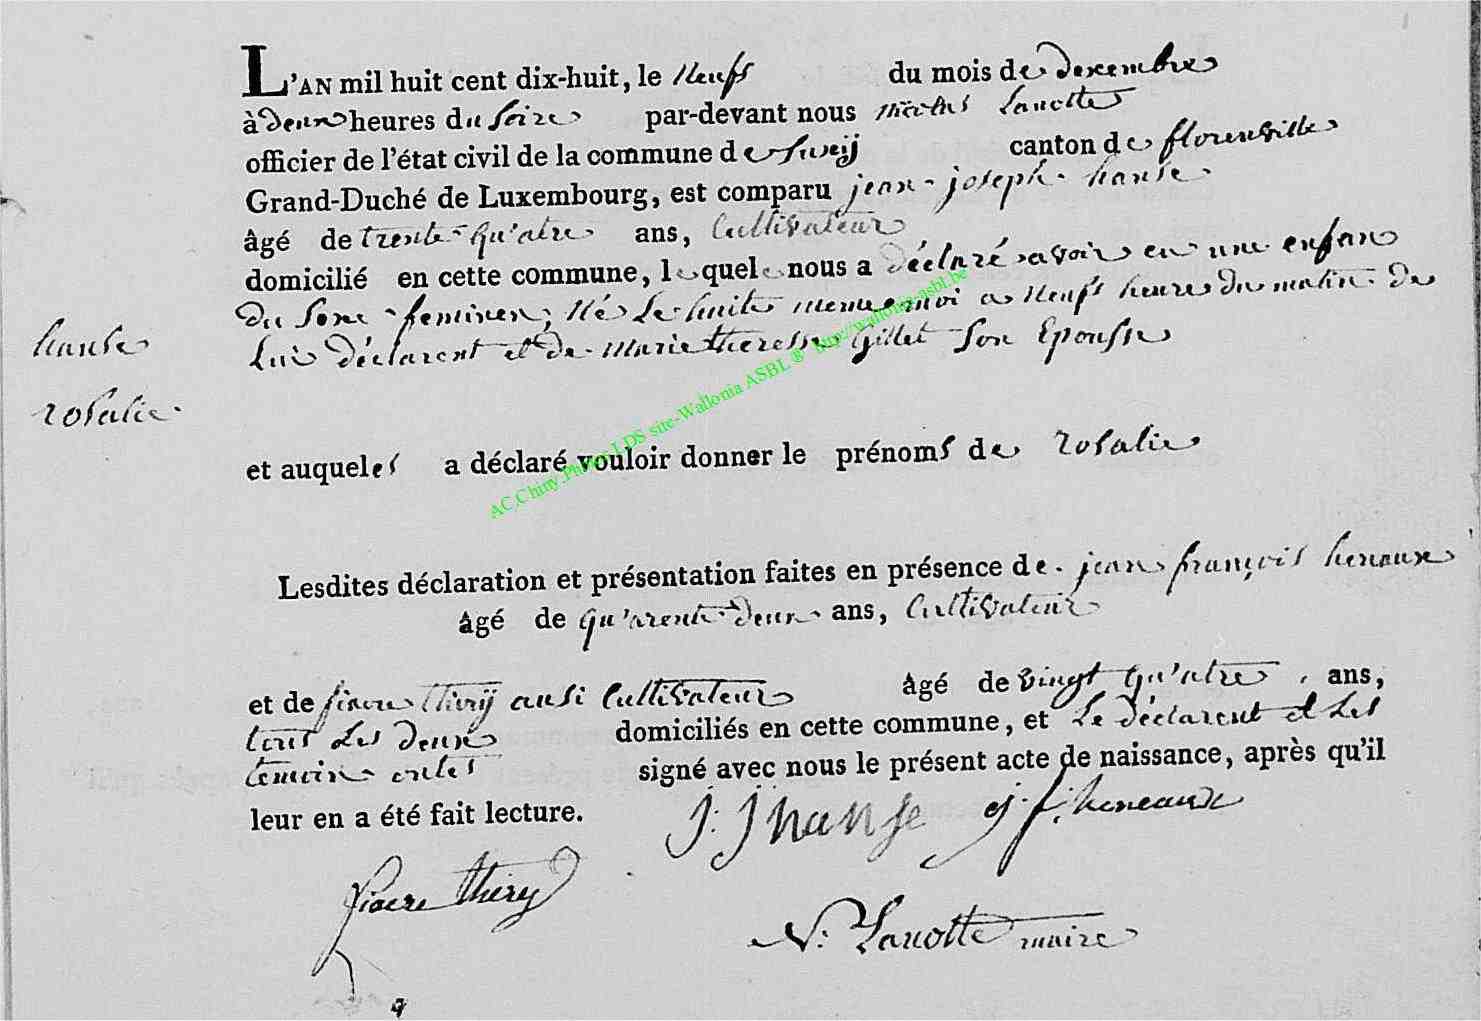 L'AN mil huit cent dix-huit, le neufs du mois de decembre
à deux heures du soire par-devant nous nicolas Lanotte
officier de l'état civil de la commune de Sueij canton de florenville
Grand-Duché de Luxembourg, est comparu jean-joseph hanse
âgé de trente-qu'atre ans, Cultivateur
domicilié en cette commune, lequel nous a déclaré avoir eu une enfan
du sexe feminen, né le huite meme moi a neufs heure du matin de
lui déclarent et de marie theresse gillet son Epousse
hanse
rosalie
et auqueles a déclaré vouloir donner le prénoms de rosalie
AC,Chiny,Photos LDS site-Wallonia ASBL ® http://wallonia-asbl.be
Lesdites déclaration et présentation faites en présence de jean françois heneaux
âgé de qu'arente deux ans, Cultivateur
et de fiacre thirij ausi Cultivateur âgé de vingt qu'atre ans,
tous les deux domiciliés en cette commune, et le déclarent et les
temoin ontes signé avec nous le présent acte de naissance, après qu'il
leur en a été fait lecture.
J: J hanse j. f: heneaux
fiacre thiry
N: Lanotte maire